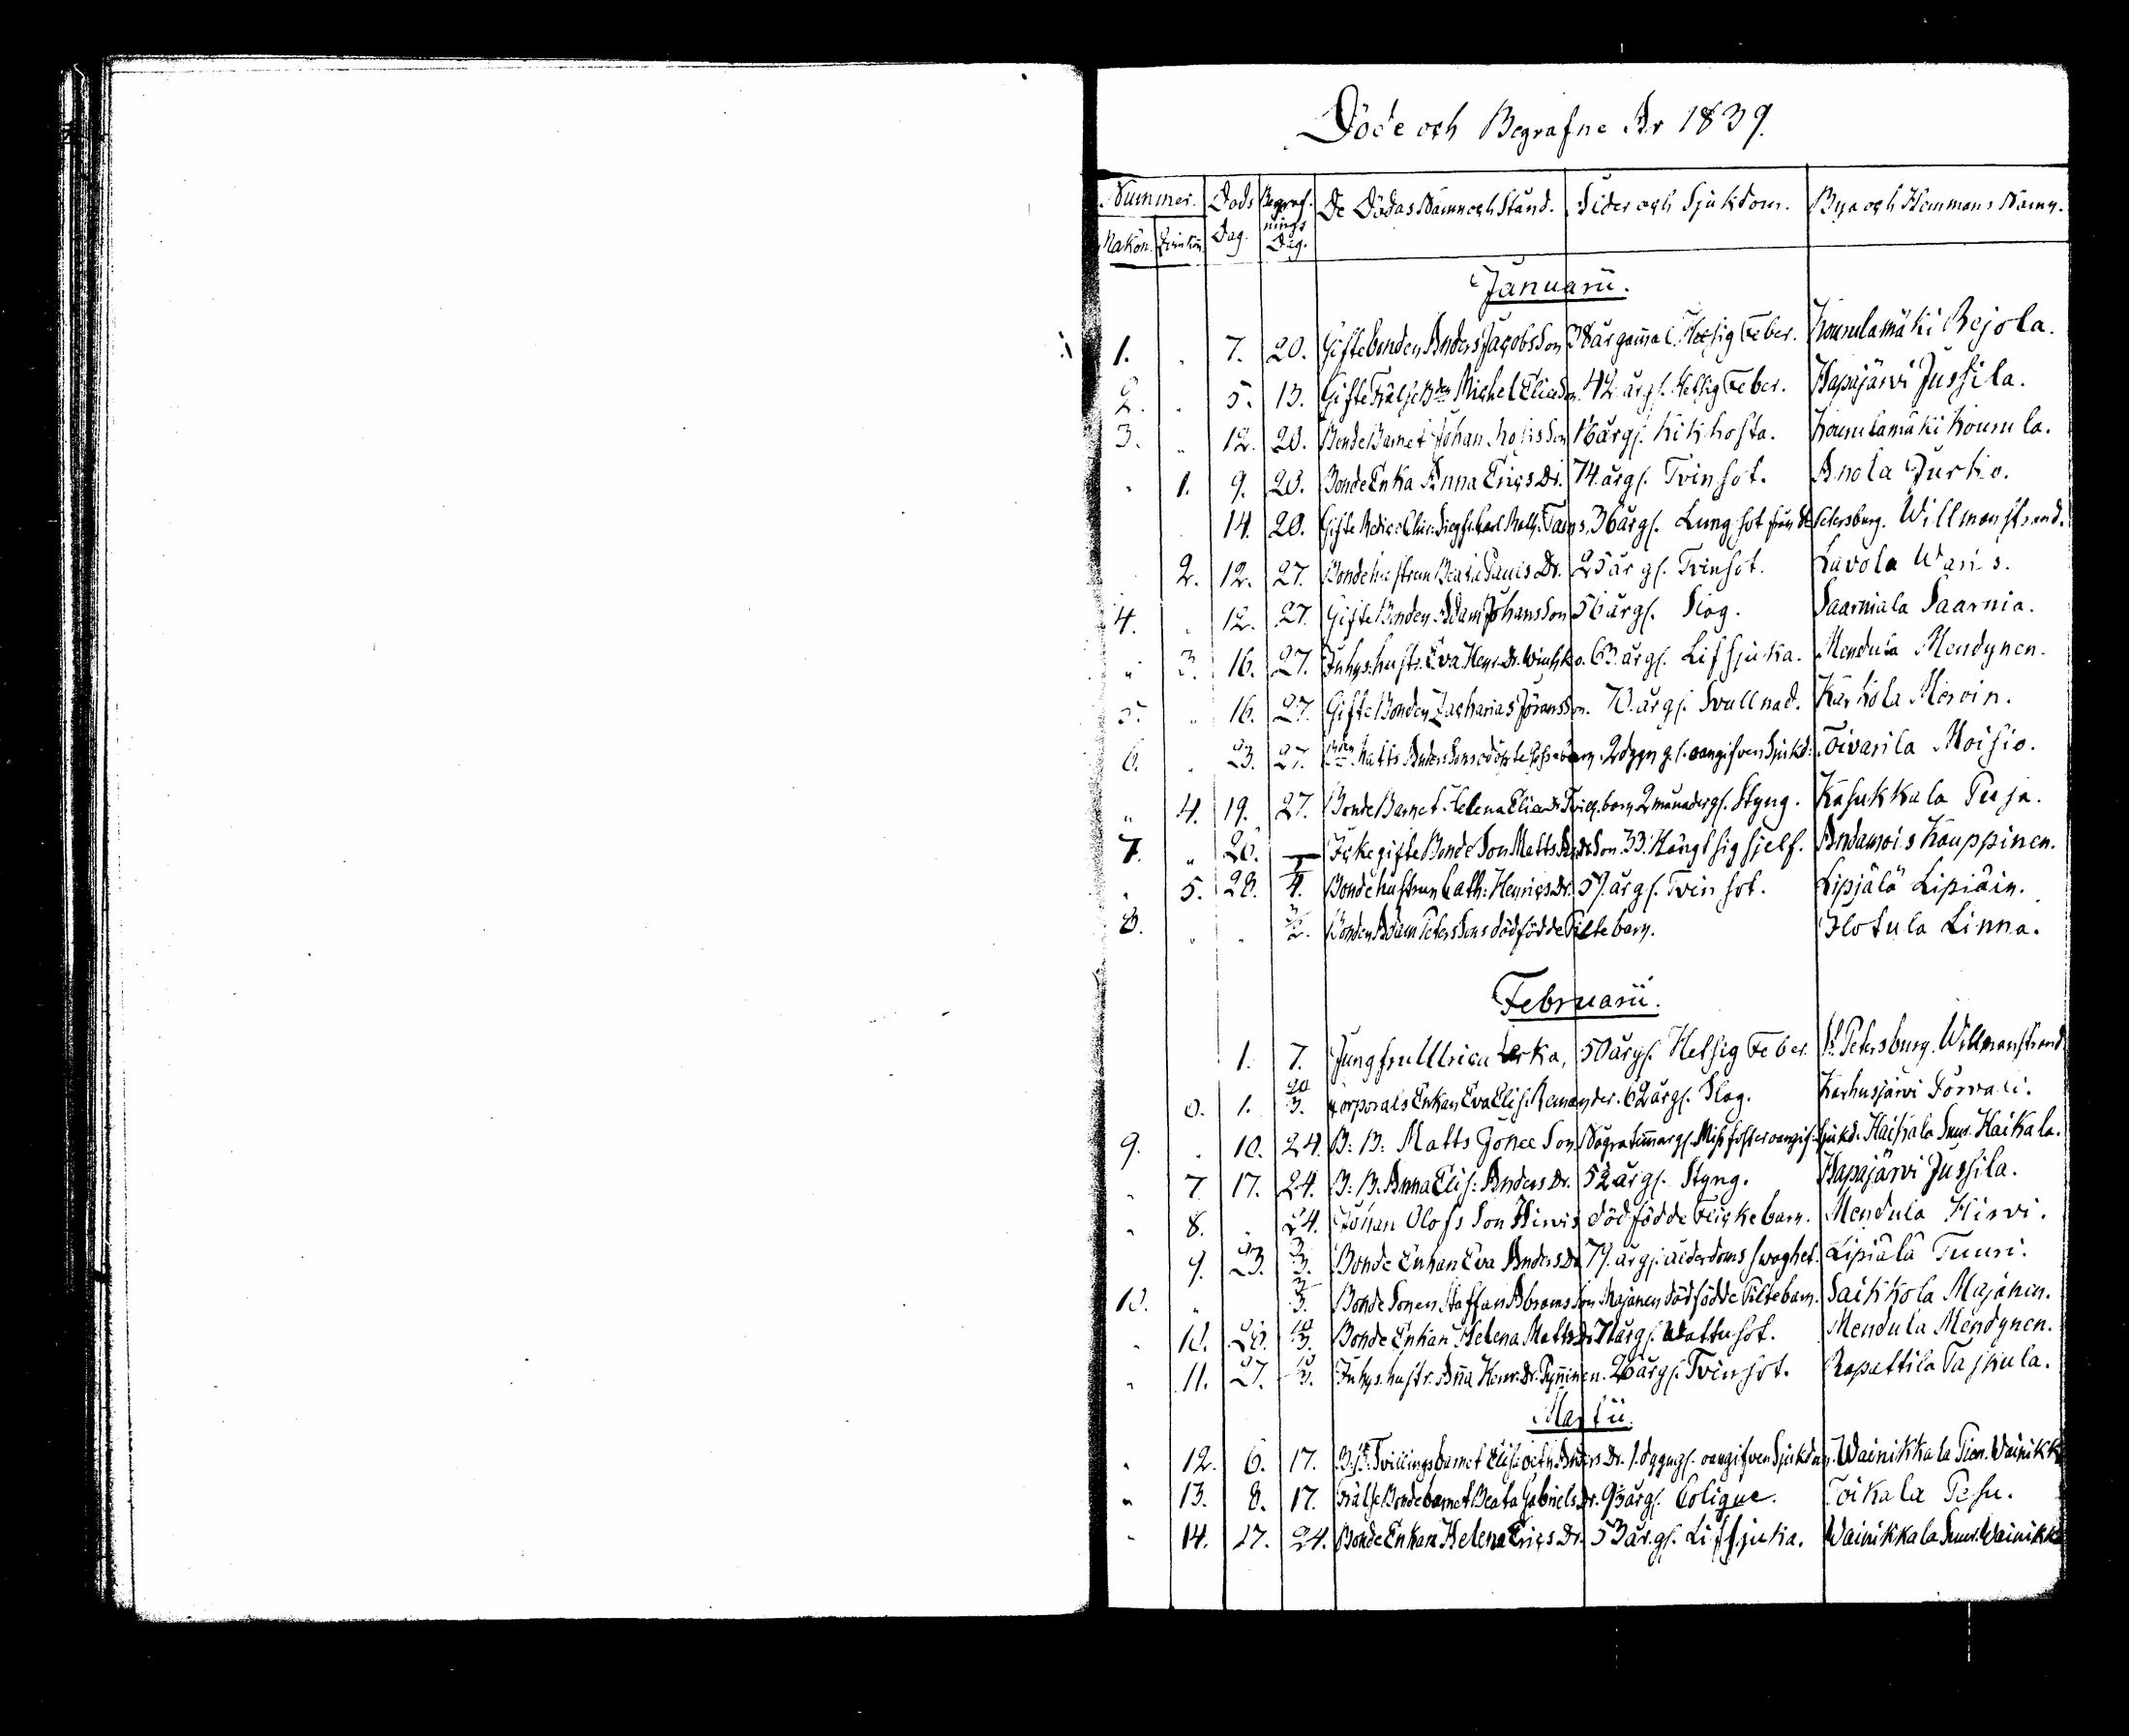 Döde och Begrafne År 1839.
Nummer. Döds Dag. Begrafnings Dag. De Dödas Namn och Stånd. Ålder och Sjukdom. By och Hemmans Namn.
Mankön. Qvinkön
Januarii.
1. 7. 20. Gifte bonden Anders Jacobsson 38 år gammal. Hetsig Feber. Kounulamäki Rejola.
2. 5. 13. Gifte Frälse Bden Michel Eliasson. 42 år gl. Hetsig Feber. Hapajärvi Jussila.
3. " 12. 20. Bonde Barnet Johan Kikhosta. Kounulamäki Kounula.
" 1. 9. 20. Bonde Enka Anna Erics Dr. 74 år gl. Tvinsot. Anola Jurko.
14. 20. Gifte 36 år gl. Lungsot från St Petersburg. Willmanstrand.
2. 12. 27. Bondehustrun Beata Pauls Dr. 25 år gl. Tvinsot. Lavola Waris.
4. 12. 27. Gifte Bonden Adam Johansson 56 år gl. Slag. Saarniala Saarnia.
" 3. 16. 27. Inhys. hustr. Eva Henr. Dr. 63 år gl. Lifsjuka. Mendula Mendynen.
5. " 16. 27. Gifte Bonden Zacharias Jöransson. 70 år gl. Svullnad. Kärkola Meroin.
6. 23. 27. Bden Matts Anderssons odöpte Gossebarn. 2 dygn gl. oangifven Sjukd. Toivarila Moisio.
" 4. 19. 27. Bonde Barnet Helena Elias Dr. 2 månader gl. Styng. Kasukkala Puja.
7. " 20. — Icke gifte Bonde Son Matts 33. Hängt sig sjelf. Andamois Kauppinen.
5. 28. 4. Bonde hustrun Cath: Henrics Dr. 57 år gl. Tvinsot. Lipjälä Lipiäin.
8. " " 3/2. Bonden Adam Peterssons dödfödde Piltebarn. Ilotula Linna.
Februarii.
1. 7. Jungfru Ulrica 50 år gl. Hetsig Feber. St. Petersburg. Willmanstrand
6. 1. 20/3. Korporals Enkan Eva Elis. 62 år gl. Slag. Karhusjärvi Sorvali.
9. 10. 24. B: B: Matts Missfoster oangif. Sjukd. Haikala Suur Haikala.
" 7 17. 24. B: B. Anna Elis: Anders Dr. Styng. Hapajärvi Jussila.
" 8. " 24. Johan Olofs Son Hirvis dödfödde Flickebarn. Mendula Hirvi.
9. 23. 3/3. Bonde Enkan Eva Anders Dr 79. år gl. ålderdoms svaghet. Lipiälä Tuuri.
10. " 3/3. Bonde Sonen Staffan Abrams Son Majanen dödfödde Piltebarn. Saikkola Majanen.
" 10. 20. 10/3. Bonde Enkan Helena Matts Dr 71 år gl. Wattusot. Mendula Mendynen.
" 11. 27. 10/3. Inhys. hustr. Anna Henr. Dr. Pynninen. 26 år gl. Tvinsot. Rapattila Taskula.
Martii.
" 12. 6. 17. B. B. Tvillingsbarnet Elisabeth Anders Dr. 1. dygn gl. oangifven Sjukdom. Wainikkala Pien. Wainikk
" 13. 8. 17. Frälse Bonde barnet Beata Gabriels Dr. Colique. Toikala Pesu.
" 14. 17. 24. Bonde Enkan Helena Erics Dr. 53 år gl. Lifsjuka. Wainikkala Suur. Wainikka